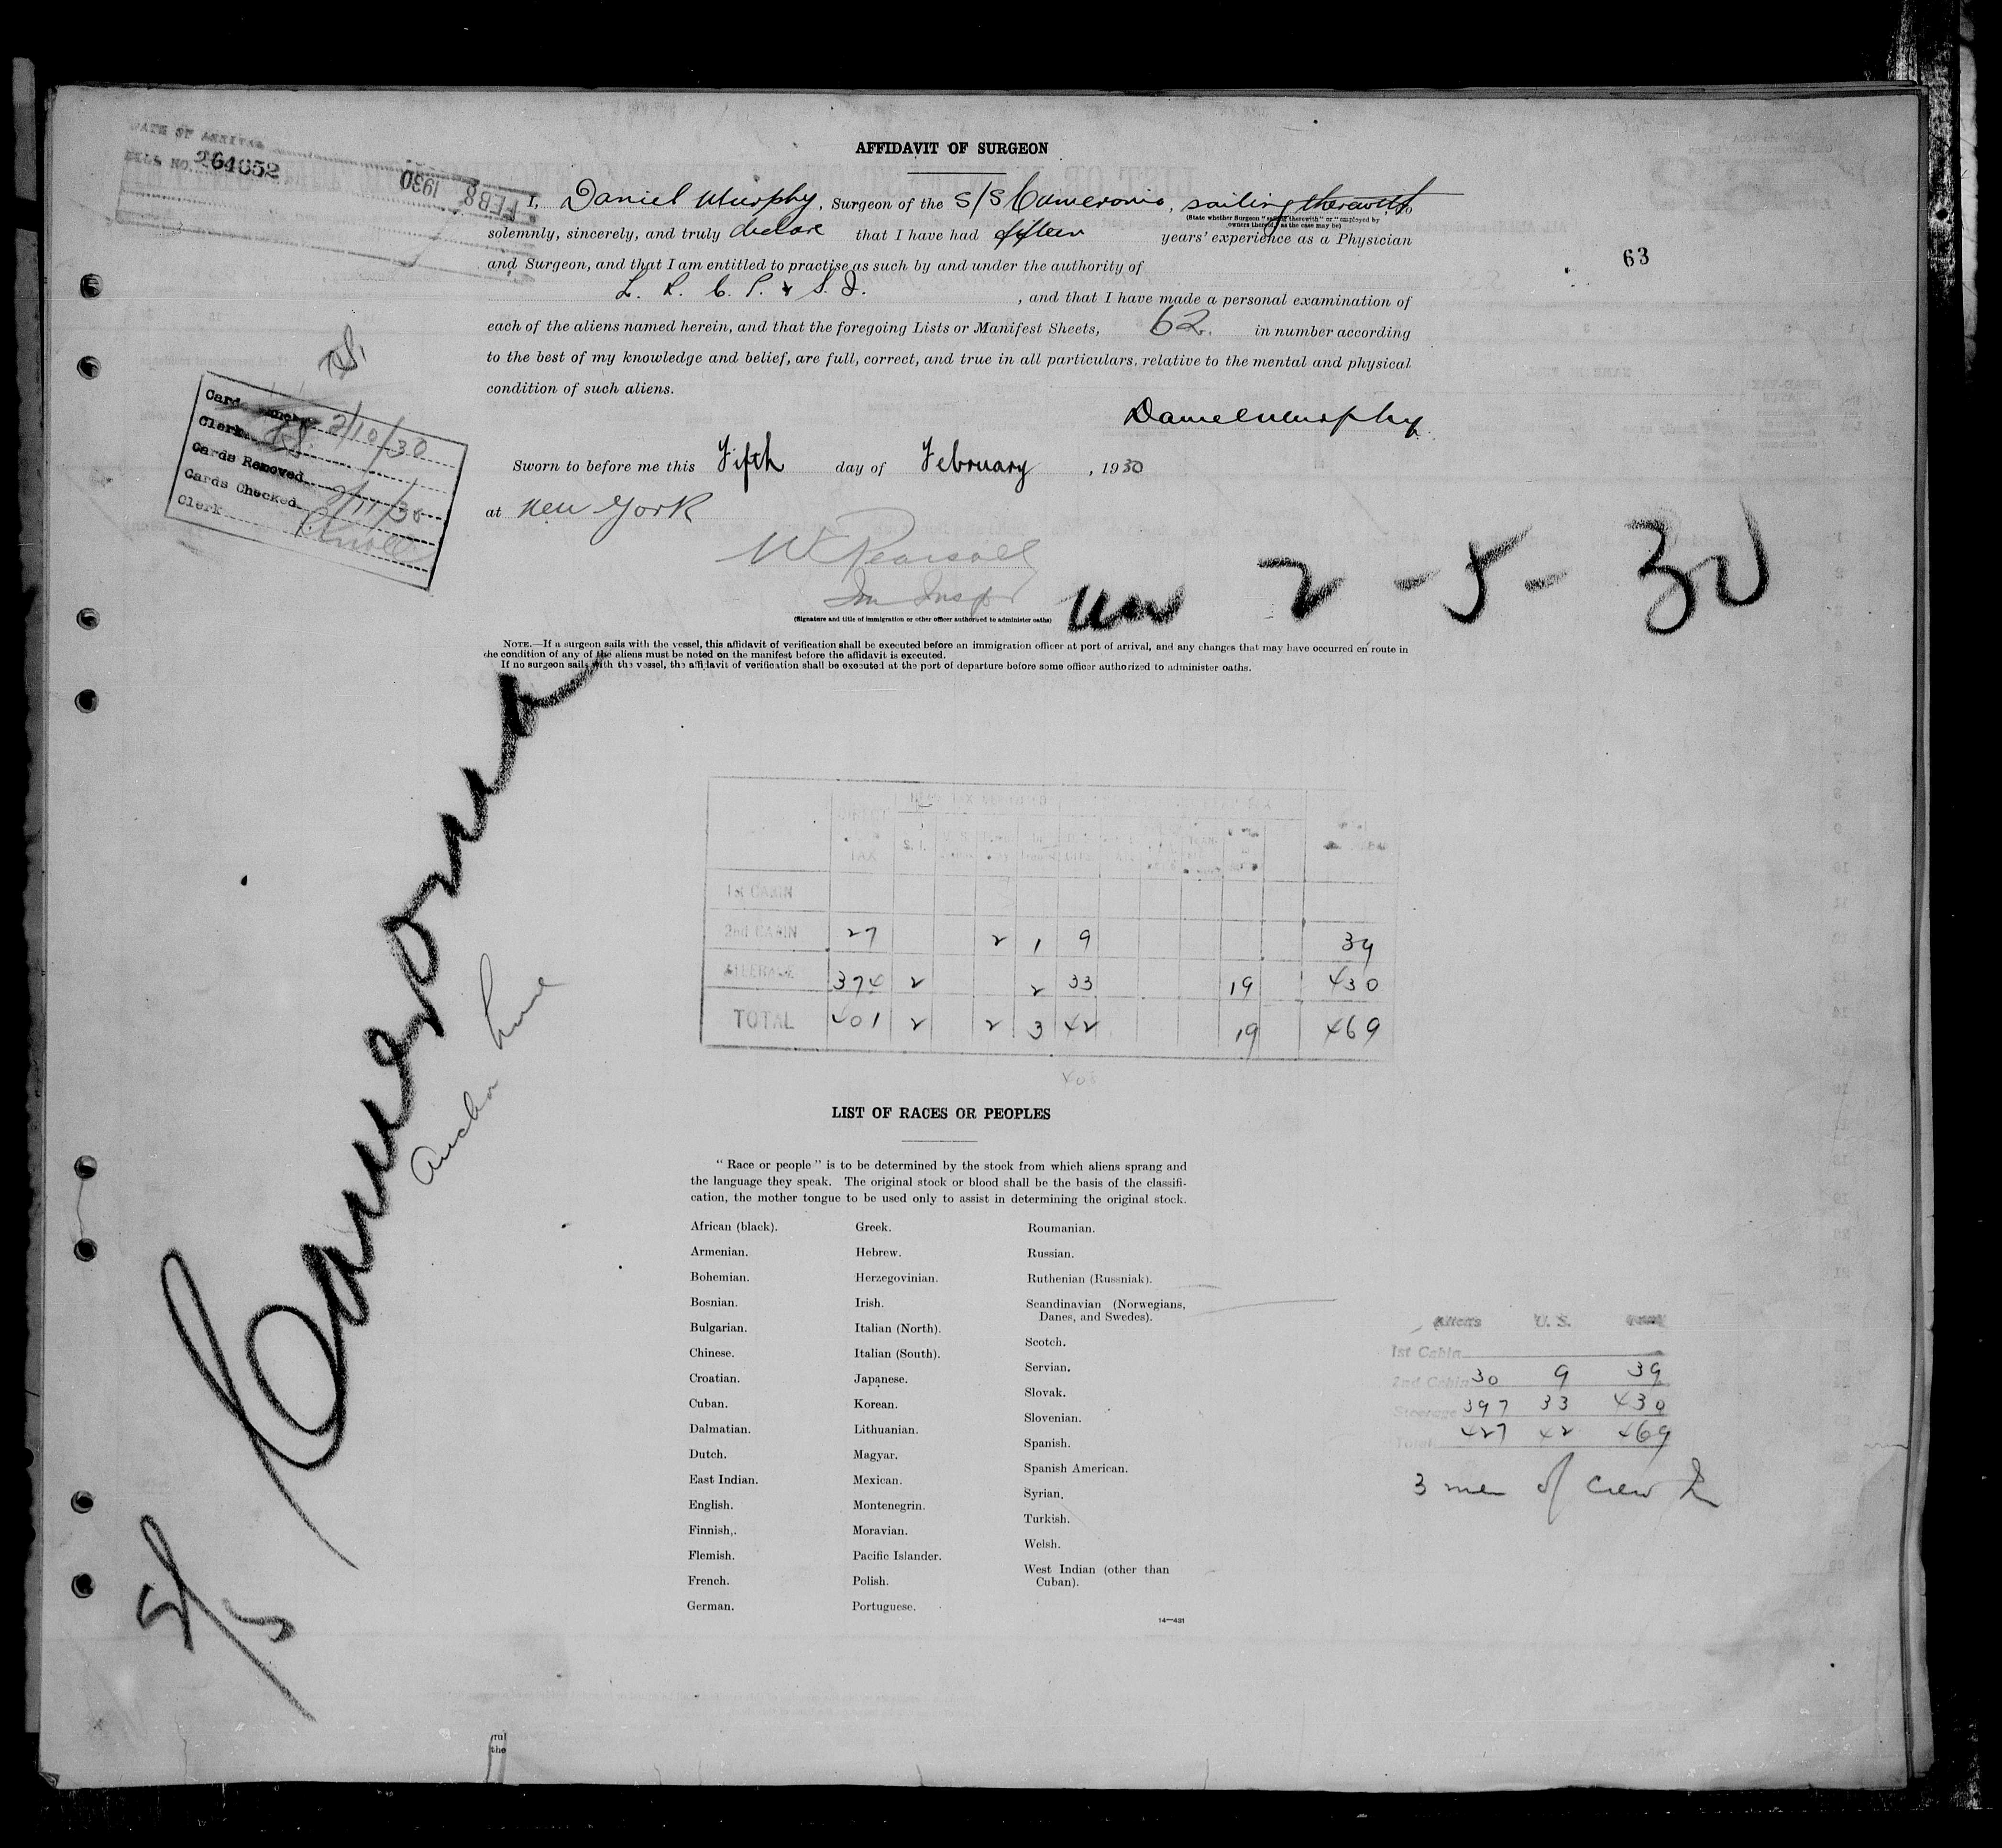 DATE OF ARRIVAL
BILL NO. 264652
FEB 8 1930
AFFIDAVIT OF SURGEON
I, Daniel Murphy, Surgeon of the S/S Cameronia, sailing therewith, do
(State whether Surgeon "sailing therewith" or "employed by
owners thereof," as the case may be)
solemnly, sincerely, and truly declare that I have had fifteen years' experience as a Physician
63
and Surgeon, and that I am entitled to practise as such by and under the authority of
L. R. C. P. & S. I. , and that I have made a personal examination of
each of the aliens named herein, and that the foregoing Lists or Manifest Sheets, 62. in number according
to the best of my knowledge and belief, are full, correct, and true in all particulars, relative to the mental and physical
condition of such aliens.
Daniel Murphy
Cards 2/10/30
Clerk
Cards Removed
Cards Checked 2/11/30
Clerk
Sworn to before me this Fifth day of February , 1930
at New York
W Pearsall
Im Inspr
(Signature and title of immigration or other officer authorized to administer oaths)
2-5-30
NOTE.—If a surgeon sails with the vessel, this affidavit of verification shall be executed before an immigration officer at port of arrival, and any changes that may have occurred en route in
the condition of any of the aliens must be noted on the manifest before the affidavit is executed.
If no surgeon sails with the vessel, the affidavit of verification shall be executed at the port of departure before some officer authorized to administer oaths.
S/S Cameronia
Anchor Line
TAX S. I.
1st CABIN
2nd CABIN 27 2 1 9 39
STEERAGE 374 2 2 33 19 430
TOTAL 401 2 2 3 42 19 469
LIST OF RACES OR PEOPLES
"Race or people" is to be determined by the stock from which aliens sprang and
the language they speak. The original stock or blood shall be the basis of the classifi-
cation, the mother tongue to be used only to assist in determining the original stock.
African (black).
Armenian.
Bohemian.
Bosnian.
Bulgarian.
Chinese.
Croatian.
Cuban.
Dalmatian.
Dutch.
East Indian.
English.
Finnish.
Flemish.
French.
German.
Greek.
Hebrew.
Herzegovinian.
Irish.
Italian (North).
Italian (South).
Japanese.
Korean.
Lithuanian.
Magyar.
Mexican.
Montenegrin.
Moravian.
Pacific Islander.
Polish.
Portuguese.
Roumanian.
Russian.
Ruthenian (Russniak).
Scandinavian (Norwegians,
Danes, and Swedes).
Scotch.
Servian.
Slovak.
Slovenian.
Spanish.
Spanish American.
Syrian.
Turkish.
Welsh.
West Indian (other than
Cuban).
14—431
Aliens U. S. Total
1st Cabin
2nd Cabin 30 9 39
Steerage 397 33 430
Total 427 42 469
3 men of crew
rul
the